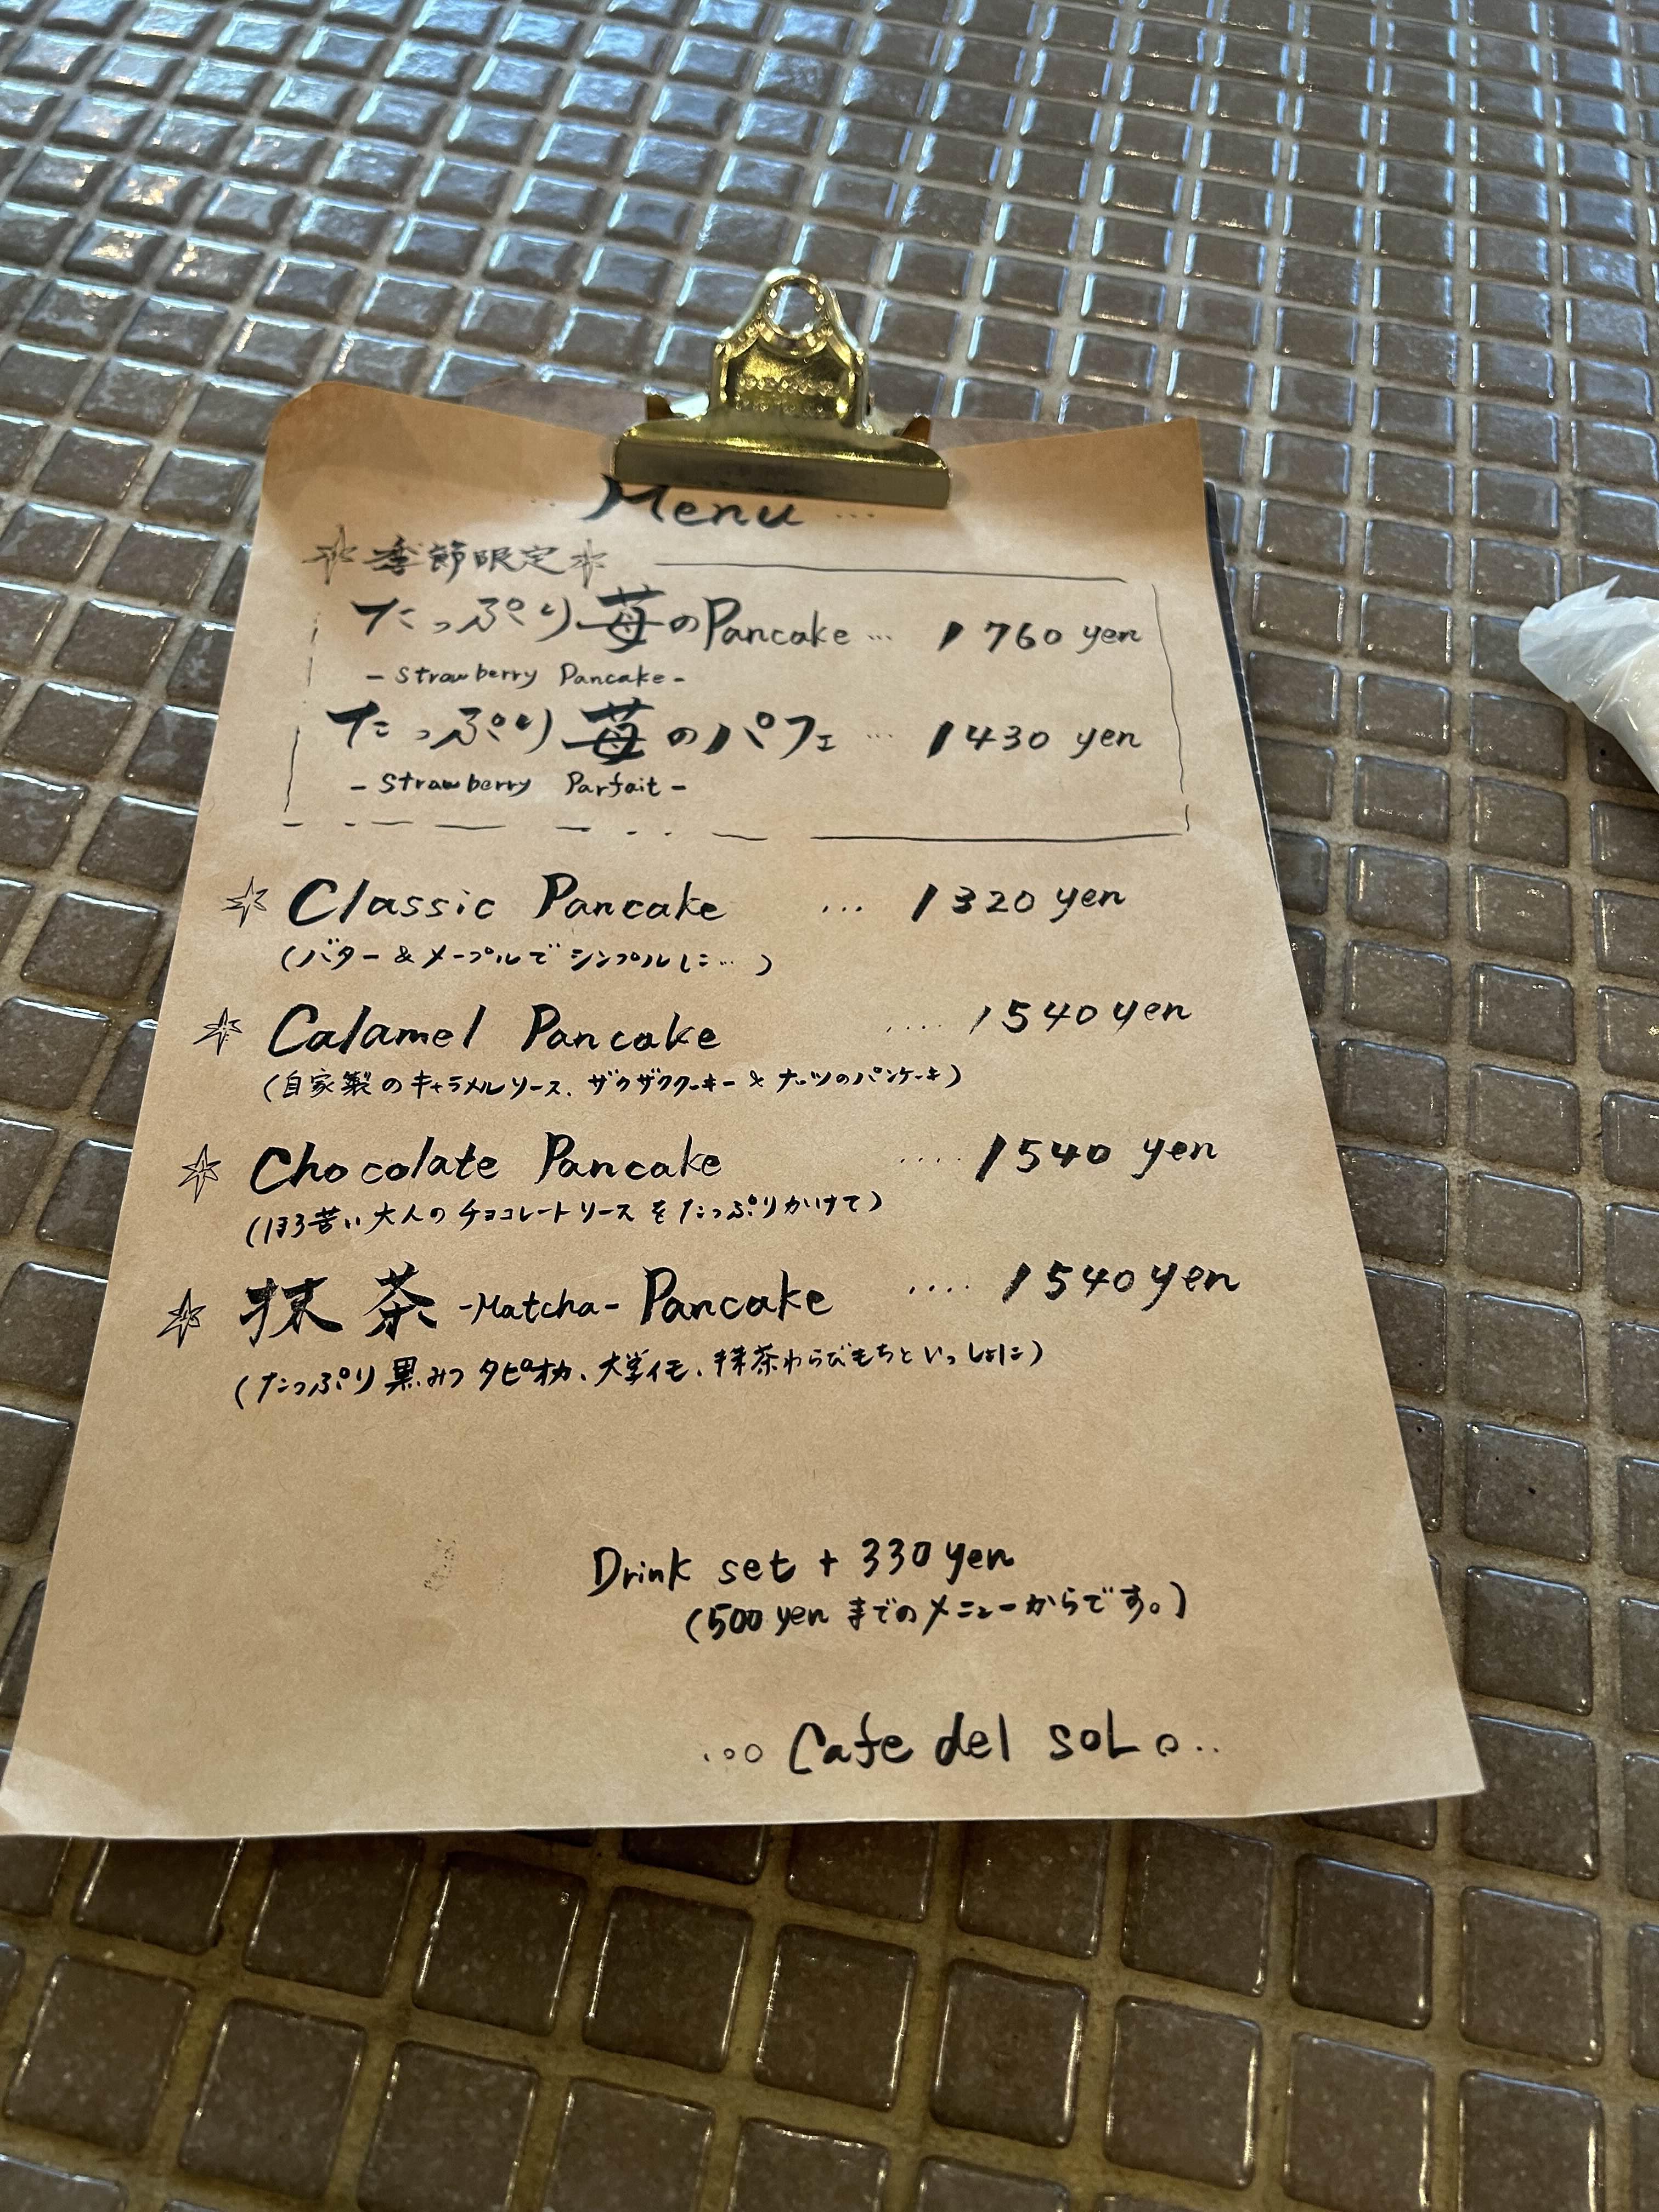 Menu ...
季節限定
たっぷり苺のPancake ... 1760 yen
- Strawberry Pancake -
たっぷり苺のパフェ ... 1430 yen
- Strawberry Parfait -
Classic Pancake ... 1320 yen
(バター&メープルでシンプルに…)
Calamel Pancake .... 1540 yen
(自家製のキャラメルソース、ザクザククッキー&ナッツのパンケーキ)
Chocolate Pancake .... 1540 yen
(ほろ苦い大人のチョコレートソースをたっぷりかけて)
抹茶 -Matcha- Pancake .... 1540 yen
(たっぷり黒みつタピオカ、大学イモ、抹茶わらびもちといっしょに)
Drink set + 330 yen
(500 yen までのメニューからです。)
Cafe del soL